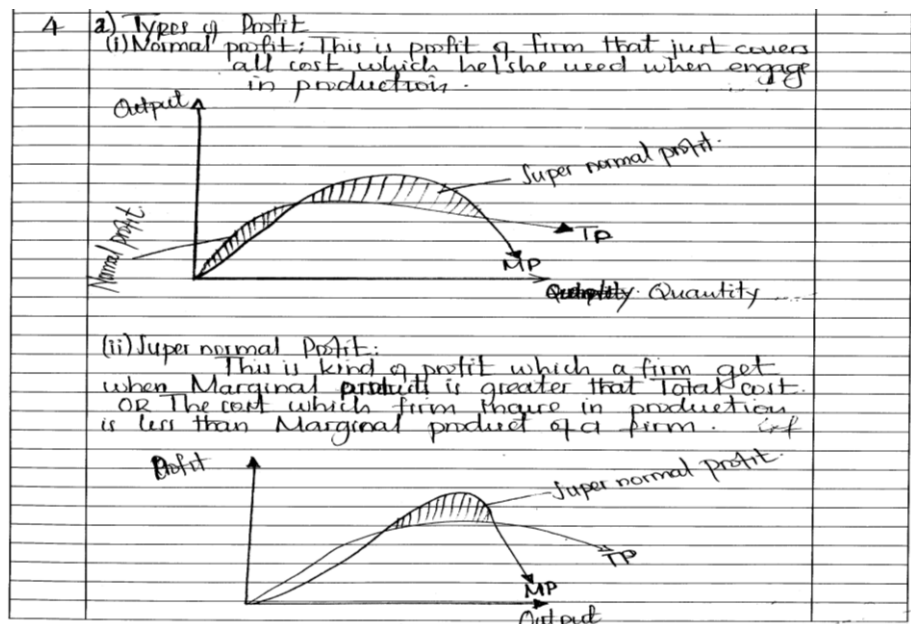 4 a) Types of Profit
(i) Normal profit; This is profit of firm that just covers
all cost which he/she used when engage
in production.
Output
Super normal profit.
Normal profit
TP
MP
Quantity
(ii) Super normal Profit:
This is kind of profit which a firm get
when Marginal product is greater that Total cost.
OR The cost which firm in production
is less than Marginal product of a firm.
Profit
Super normal profit.
TP
MP
Output